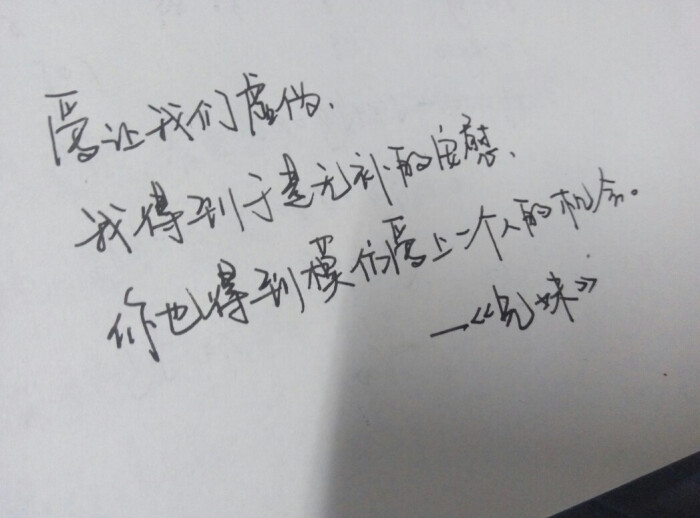 爱让我们虚伪,
我得到于是无补的安慰,
你也得到模仿爱上一个人的机会。
—《兄妹》